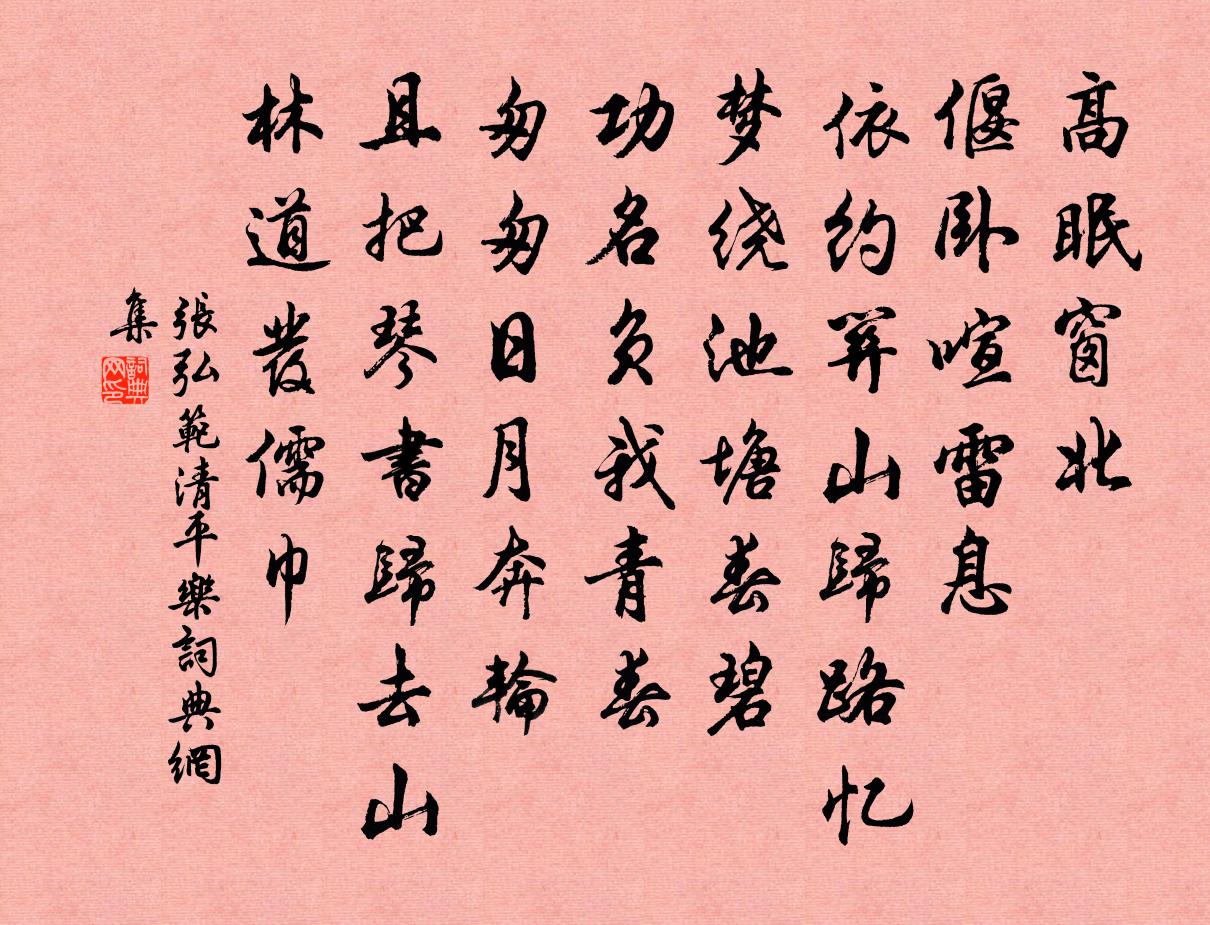 高眠窗北
偃卧喧雷息
依约山歸路忆
梦绕池塘春碧
功名负我青春
匆匆日月奔輪
且把琴書歸去山
林道發儒巾
張弘範清平樂詞典網
集
詞典
网印